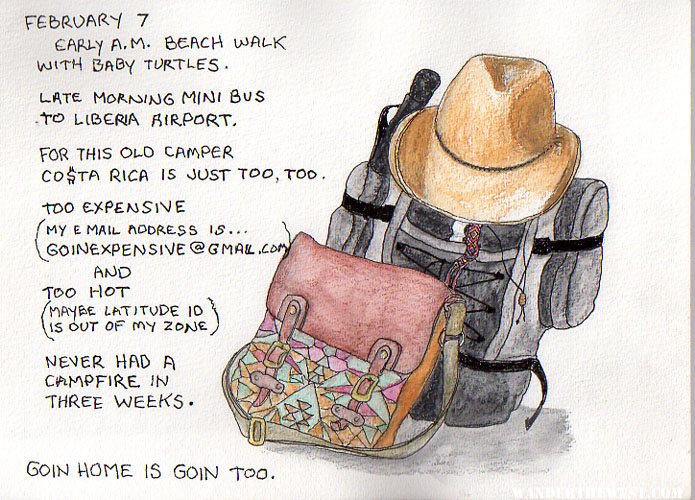 FEBRUARY 7
EARLY A.M. BEACH WALK
WITH BABY TURTLES.
LATE MORNING MINI BUS
TO LIBERIA AIRPORT.
FOR THIS OLD CAMPER
CO$TA RICA IS JUST TOO, TOO.
TOO EXPENSIVE
(MY E MAIL ADDRESS IS...
GOINEXPENSIVE@GMAIL.COM)
AND
TOO HOT
(MAYBE LATITUDE 10
IS OUT OF MY ZONE)
NEVER HAD A
CAMPFIRE IN
THREE WEEKS.
GOIN HOME IS GOIN TOO.